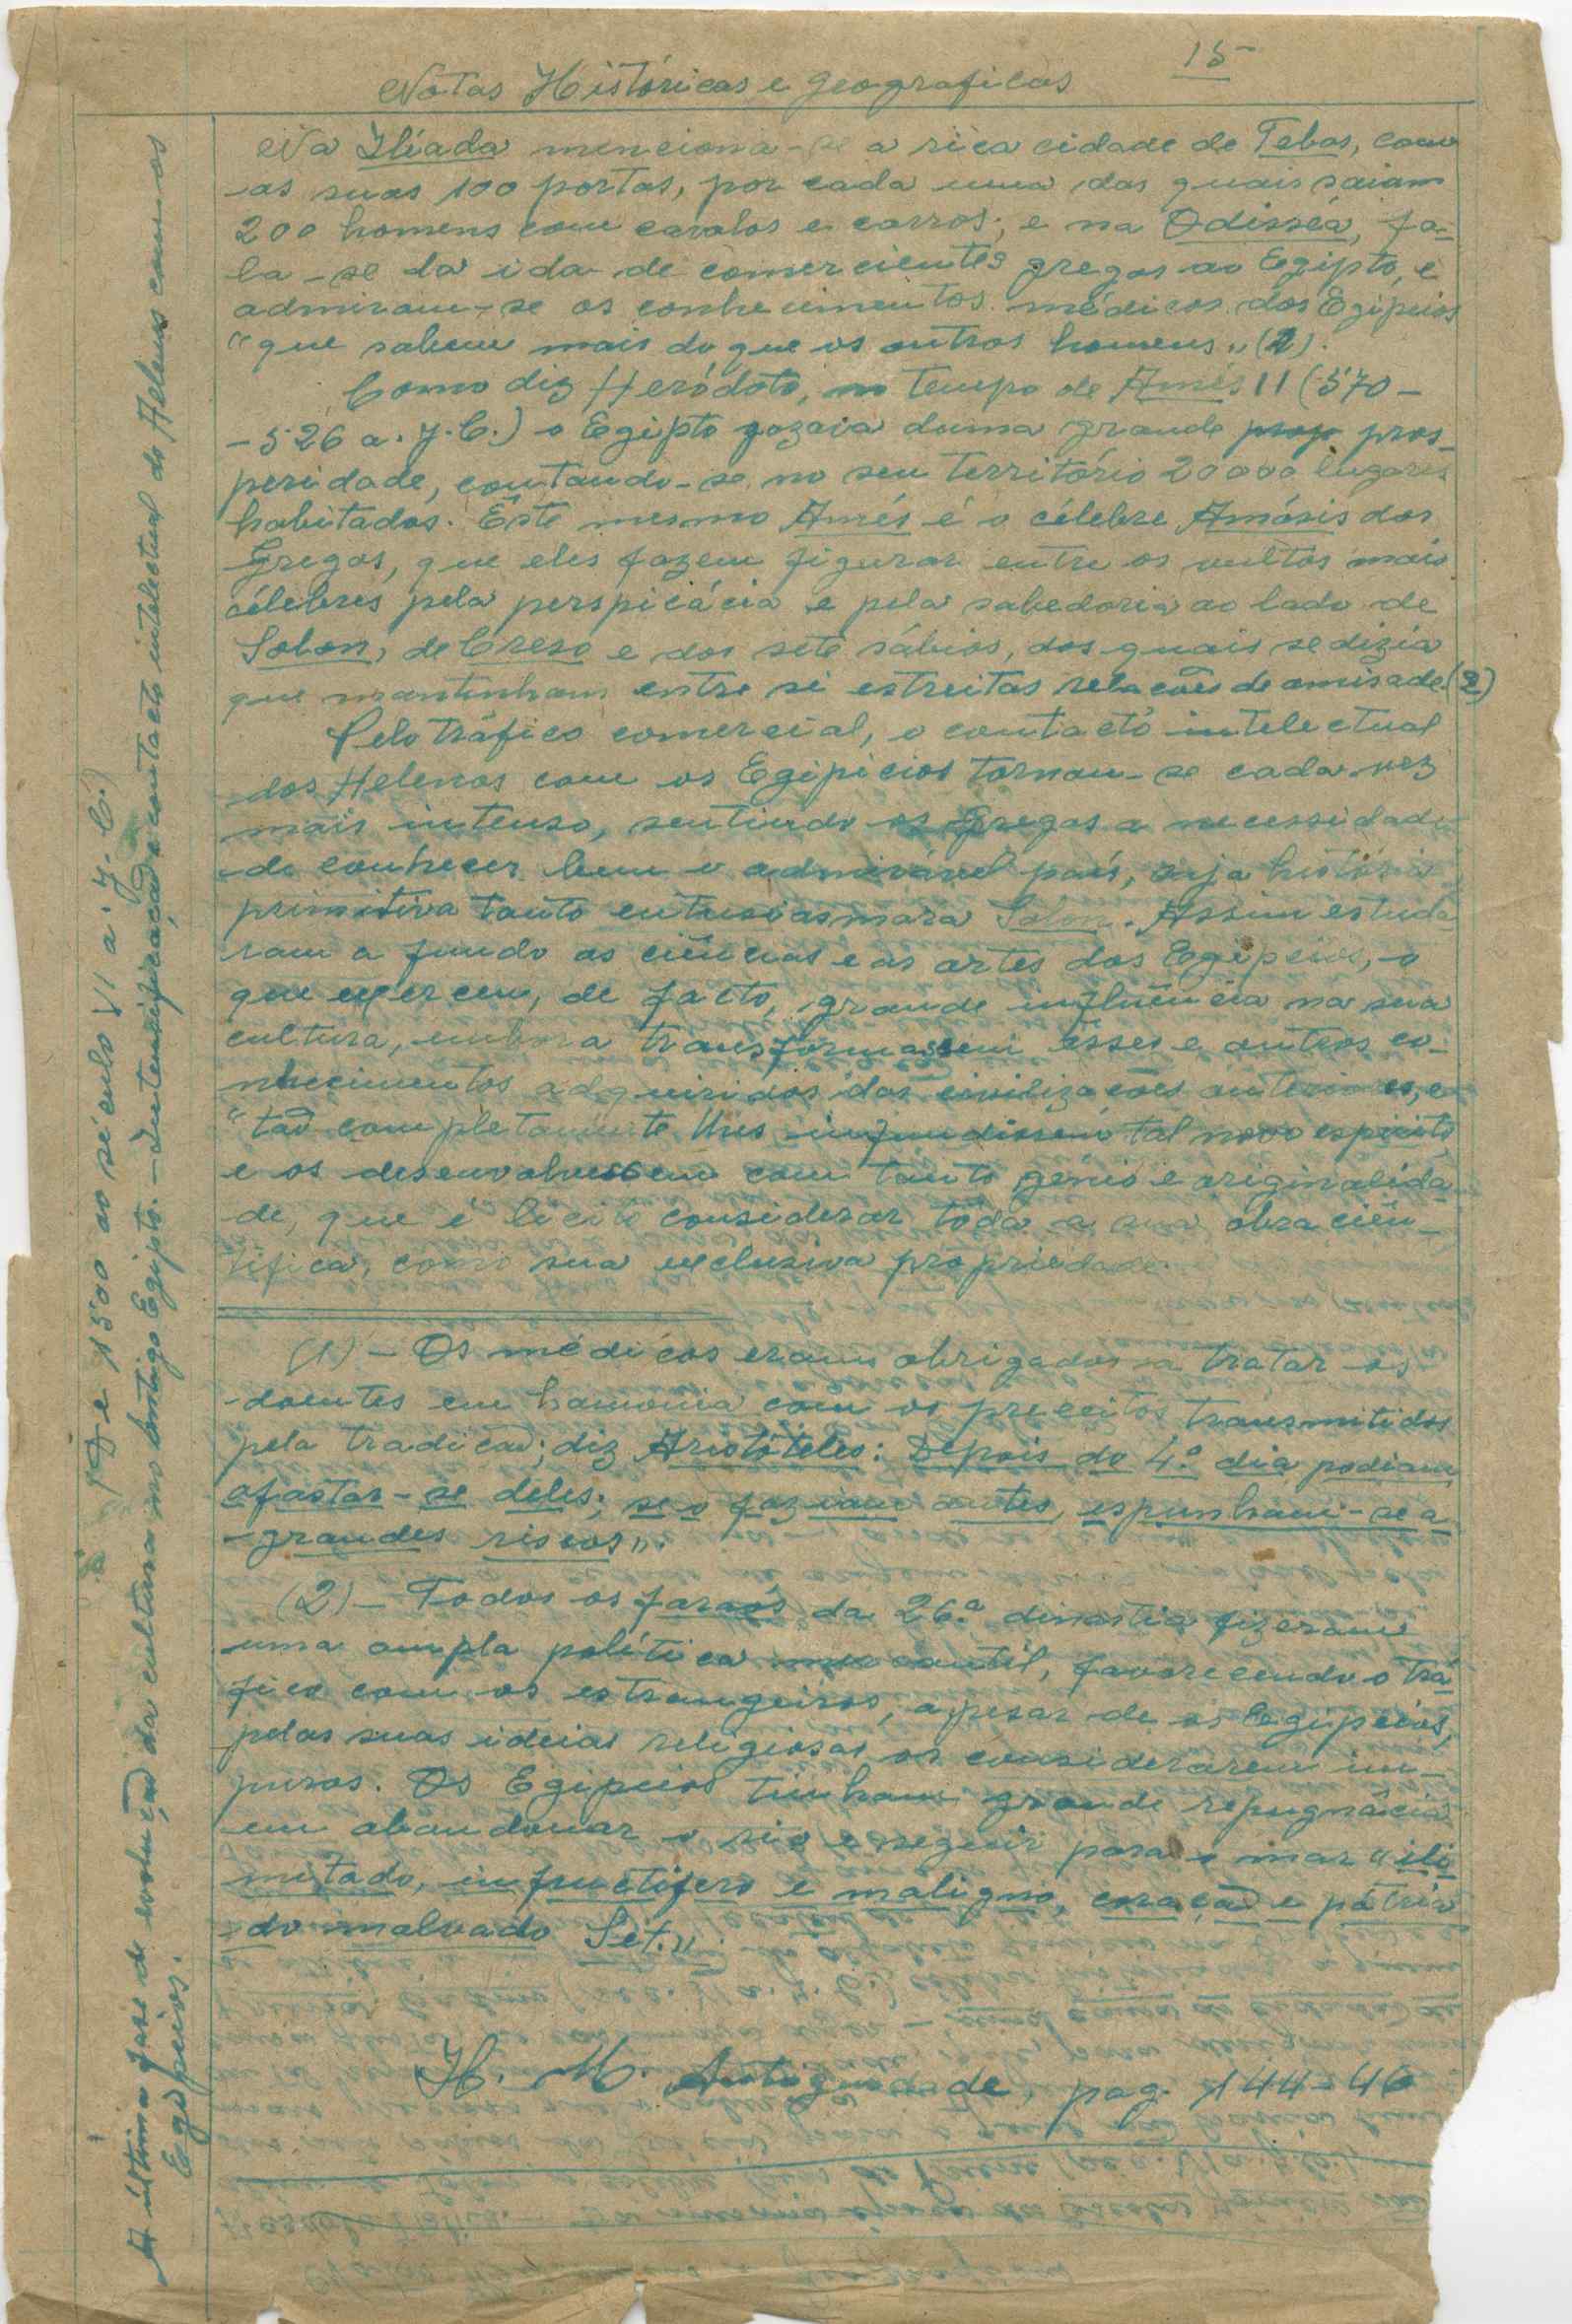 15
Notas Históricas e Geograficas
Na Ilíada menciona-se a rica cidade de Tebas, com
as suas 100 portas, por cada uma das quais saiam
200 homens com cavalos e carros; e na Odisséa, fa-
la-se da ida de comerciantes gregos ao Egipto, e
admiram-se os conhecimentos médicos dos Egípcios
"que sabem mais do que os outros homens" (1).
Como diz Heródoto, no tempo de Amés II (570-
-526 a. J. C.) o Egipto gozava duma grande pros-
peridade, contando-se no seu território 20000 lugares
habitados. Êste mesmo Amés é o célebre Amásis dos
Gregos, que eles fazem figurar entre os vultos mais
célebres pela perspicácia e pela sabedoria ao lado de
Solon, de Creso e dos sete sábios, dos quais se dizia
que mantinham entre si estreitas relações de amisade. (2)
Pelo tráfico comercial, o contacto intelectual
dos Helenos com os Egípicios tornou-se cada vez
mais intenso, sentindo os Gregos a necessidade
de conhecer bem o admirável país, cuja história
primitiva tanto entusiasmara Solon. Assim estuda
ram a fundo as ciências e as artes dos Egípcios, o
que exerceu, de facto, grande influência na sua
cultura, embora transformassem êsses e outros co-
nhecimentos adquiridos das civilizações anteriores, e
"tão completamente lhes infundissem tal novo espírito
e os desenvolvessem com tanto génio e originalida
de, que é lícito considerar toda a sua obra cien-
tífica, como sua exclusiva propriedade.
(1) - Os médicos eram obrigados a tratar os
doentes em harmonia com os preceitos transmitidos
pela tradição; diz Aristóteles: Depois do 4.º dia podiam
afastar-se deles; se o faziam antes, espunham-se a
grandes riscos".
(2) - Todos os faraós da 26.ª dinastia fizeram
uma ampla política mercantil, favorecendo o trá
fico com os estrangeiros, apesar de os Egípcios,
pelas suas ideias religiosas os considerarem im-
puros. Os Egípcios tinham grande repugnância
em abandonar o rio e seguir para o mar "ili
mitado, infructífero e maligno, coração e pátria
do malvado Set."
H. M. Antiguidade, pag. 144-46
De 1500 ao século VI a. J. C.)
A última fase da evolução da cultura no antigo Egipto. - Intensificação e contacto intelectual do Helenos com os
Egípcios.